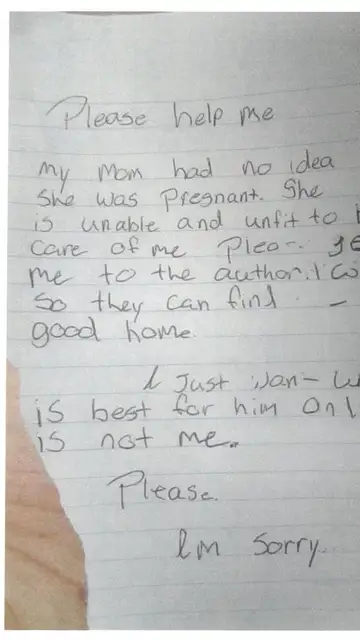 Please help me
My Mom had no idea
She was Pregnant. She
is unable and unfit to
care of me
me to the
So they can find
good home.
I Just
is best for him
is not me.
Please.
Im Sorry.